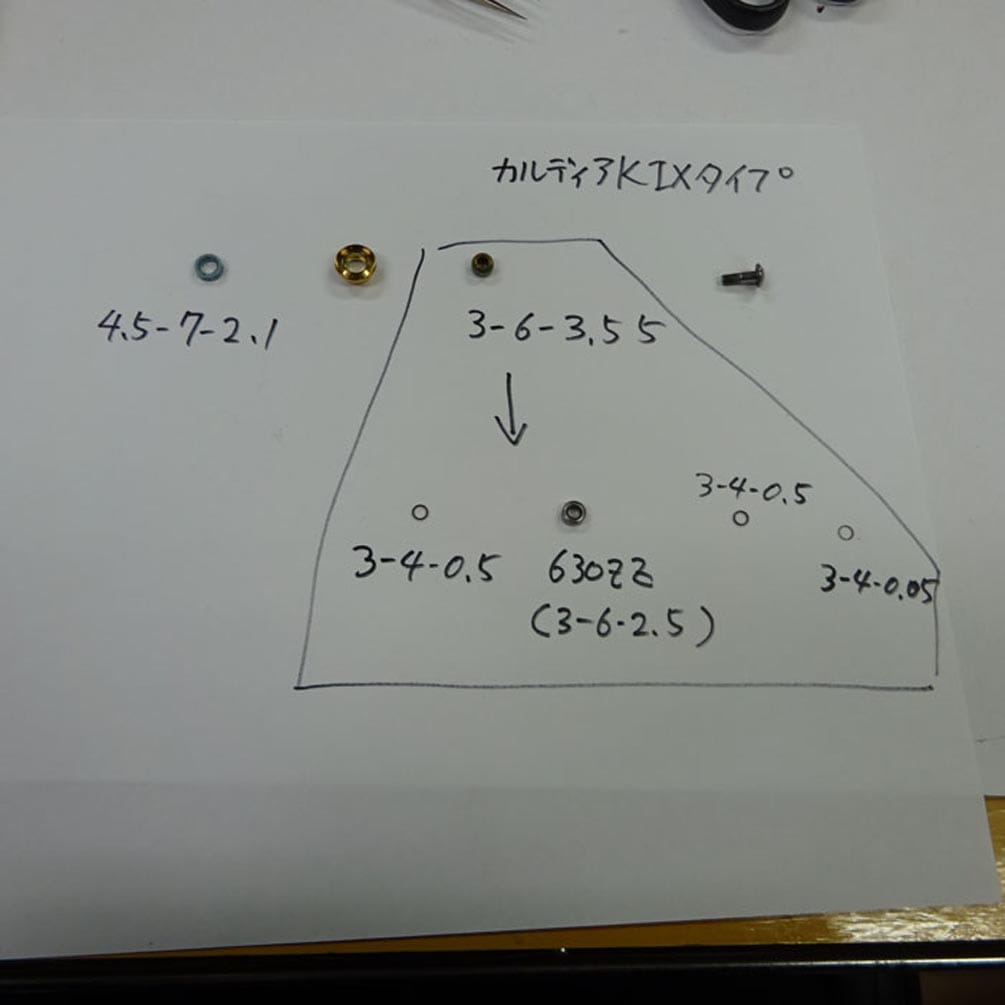 カルディアKIXタイプ
4.5-7-2.1
3-6-3.55
↓
3-4-0.5
3-4-0.5
630ZZ
(3-6-2.5)
3-4-0.05